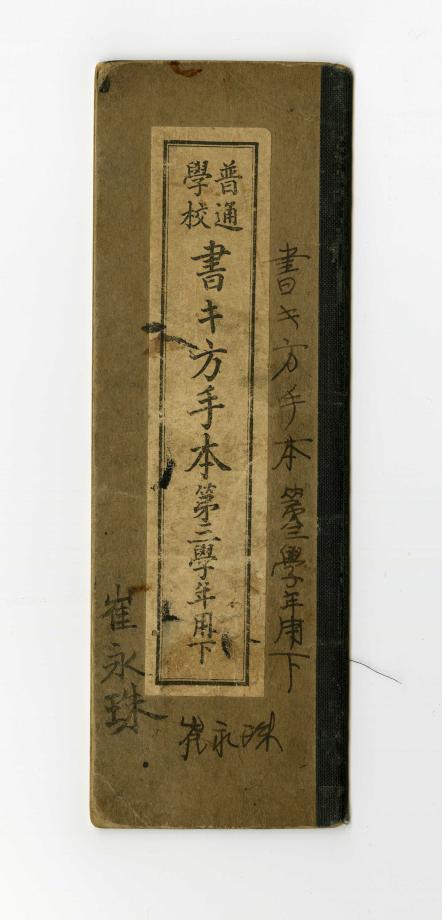 書キ方手本第三學年用下
普通
學校
書キ方手本第三學年用下
崔永珠
崔永珠